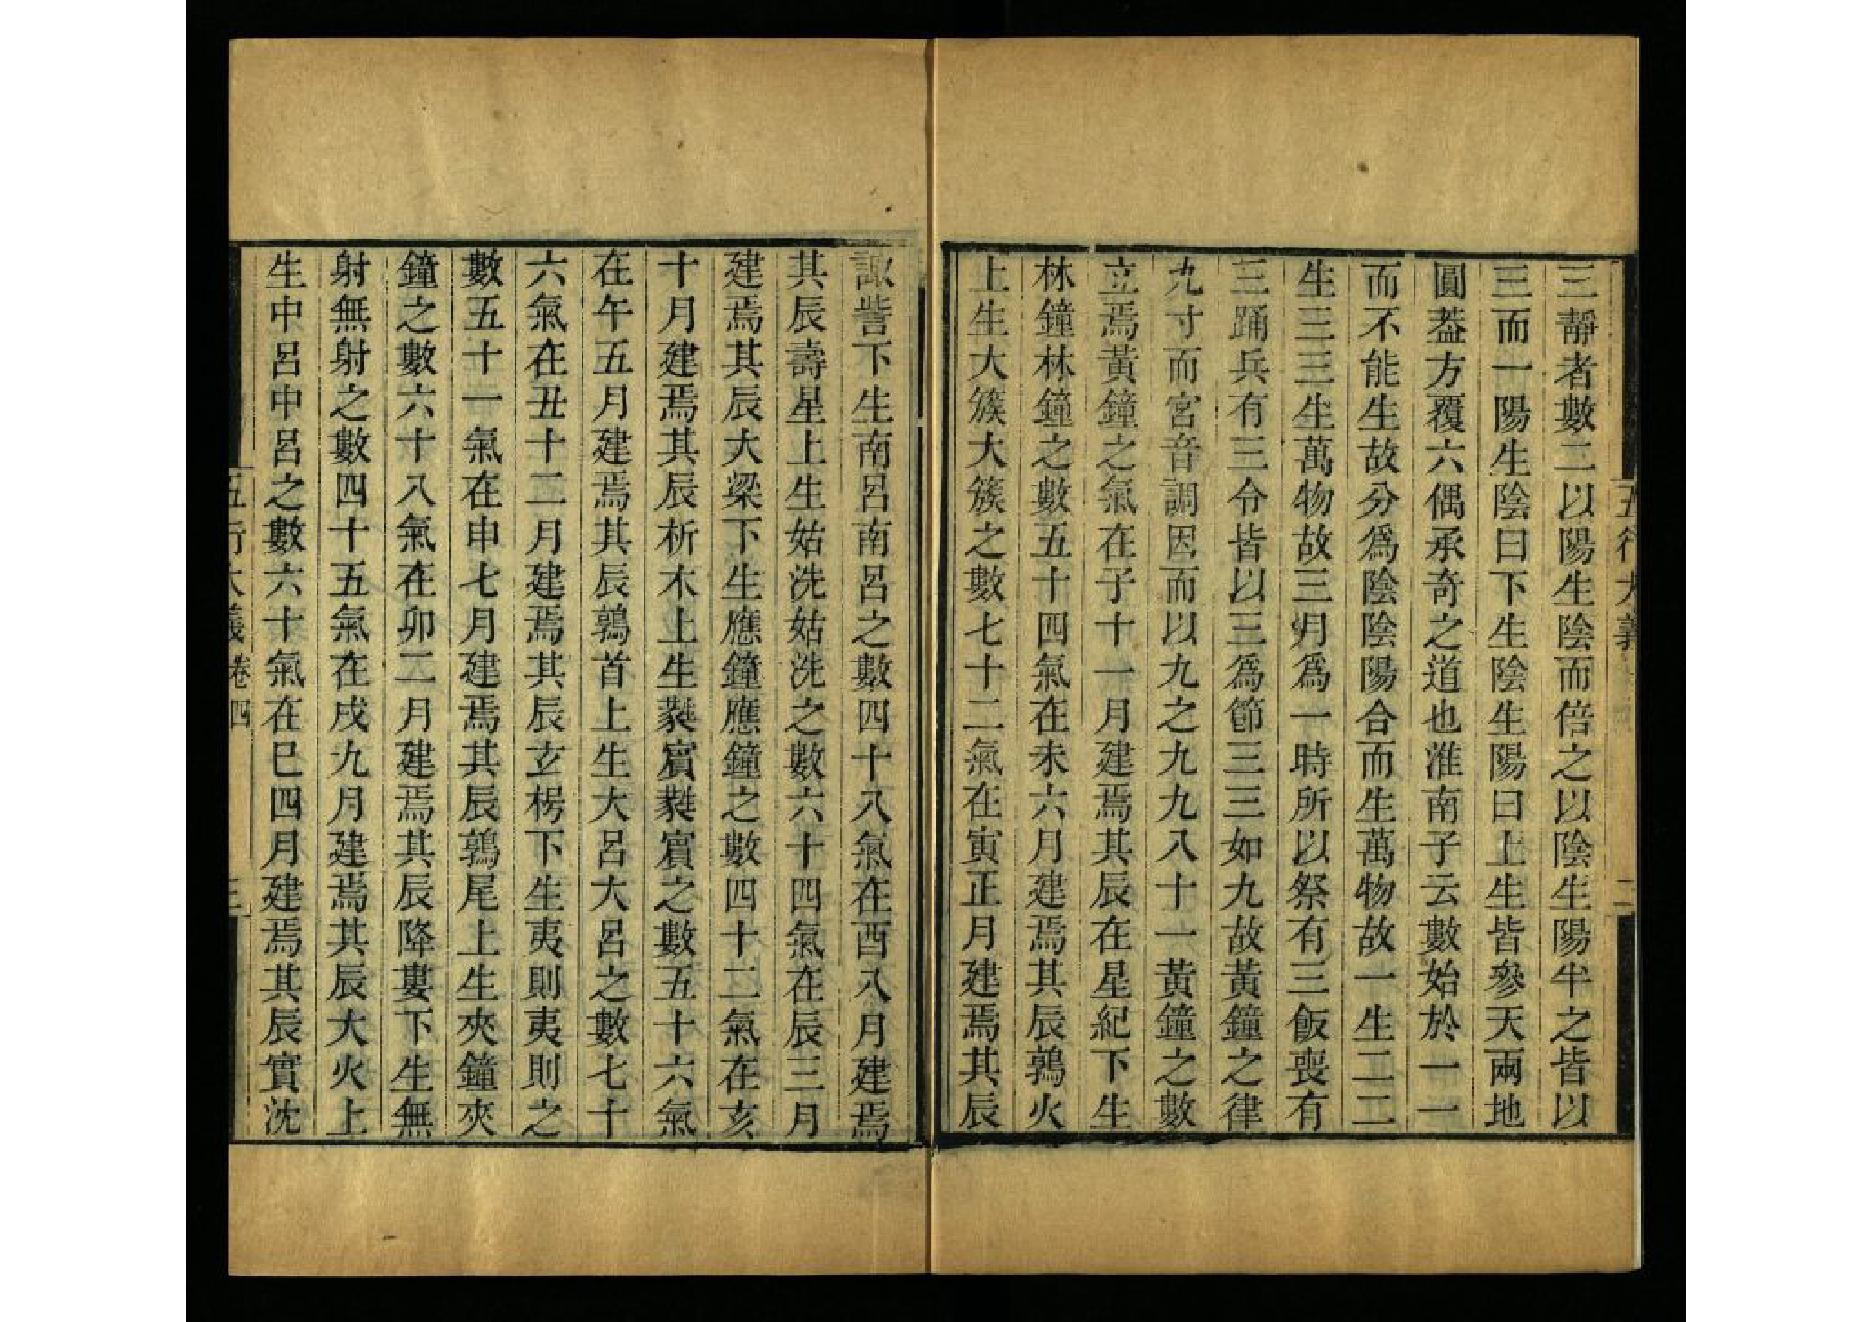 三靜者數二以陽生陰而倍之以陰生陽半之皆以
三而一陽生陰曰下生陰生陽曰上生皆參天兩地
圓葢方覆六偶承奇之道也淮南子云數始於一一
而不能生故分爲陰陰陽合而生萬物故一生二二
生三三生萬物故三月爲一時所以祭有三飯喪有
三踊兵有三令皆以三爲節三三如九故黃鐘之律
九寸而宮音調因而以九之九九八十一黃鐘之數
立焉黃鐘之氣在子十一月建焉其辰在星紀下生
林鐘林鐘之數五十四氣在未六月建焉其辰鶉火
上生大簇大簇之數七十二氣在寅正月建焉其辰
諏訾下生南呂南呂之數四十八氣在酉八月建焉
其辰壽星上生姑洗姑洗之數六十四氣在辰三月
建焉其辰大梁下生應鐘應鐘之數四十二氣在亥
十月建焉其辰析木上生蕤賓蕤賓之數五十六氣
在午五月建焉其辰鶉首上生大呂大呂之數七十
六氣在丑十二月建焉其辰玄枵下生夷則夷則之
數五十一氣在申七月建焉其辰鶉尾上生夾鐘夾
鐘之數六十八氣在卯二月建焉其辰降婁下生無
射無射之數四十五氣在戌九月建焉其辰大火上
生中呂中呂之數六十氣在巳四月建焉其辰實沈
五行大義 卷四 三